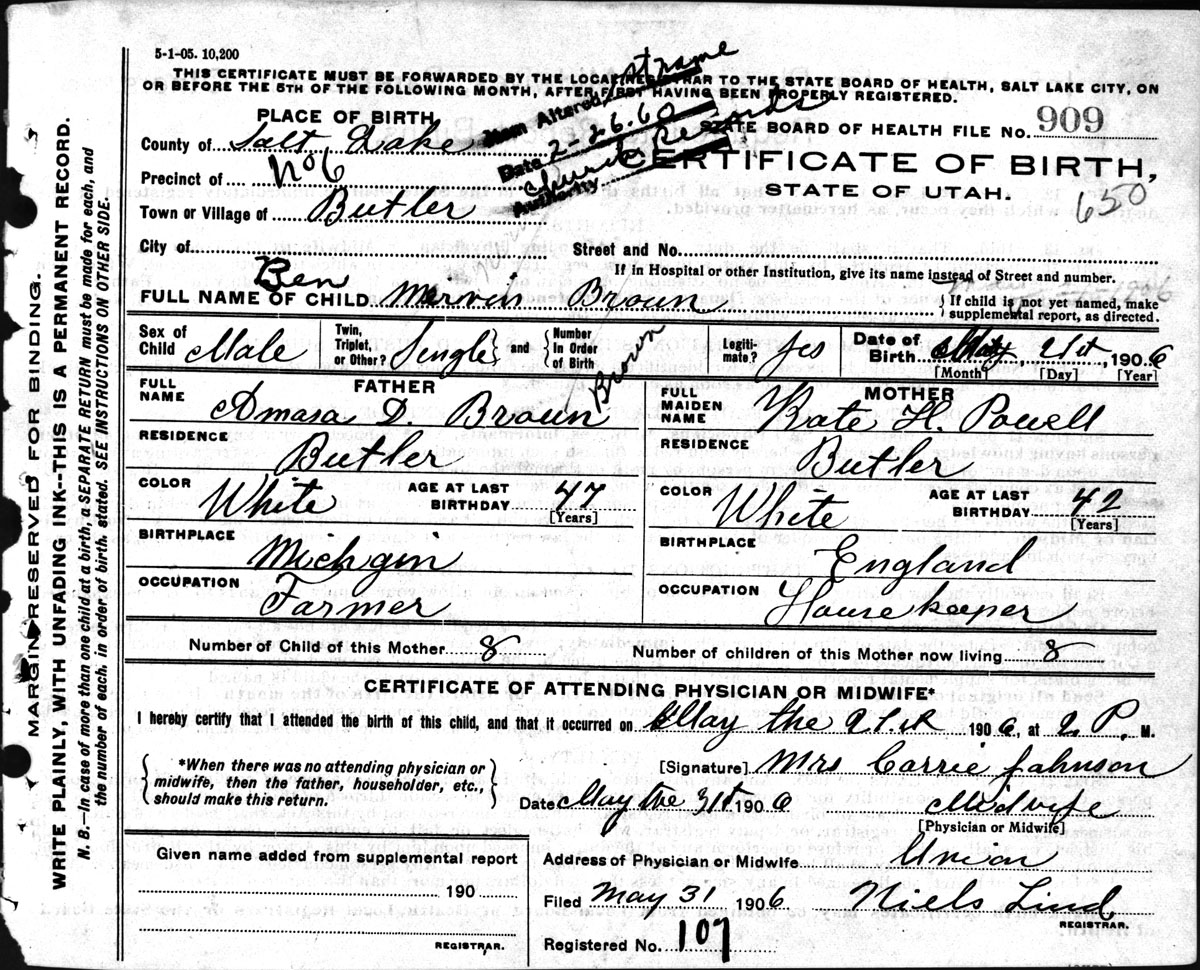 5-1-05. 10,200
THIS CERTIFICATE MUST BE FORWARDED BY THE LOCAL REGISTRAR TO THE STATE BOARD OF HEALTH, SALT LAKE CITY, ON
OR BEFORE THE 5TH OF THE FOLLOWING MONTH, AFTER FIRST HAVING BEEN PROPERLY REGISTERED.
Item Altered 1st name
Date 2-26-60
Authority Church Records
PLACE OF BIRTH
STATE BOARD OF HEALTH FILE No. 909
County of Salt Lake
CERTIFICATE OF BIRTH,
Precinct of No 6
STATE OF UTAH.
650
Town or Village of Butler
City of Street and No.
If in Hospital or other Institution, give its name instead of Street and number.
Ben
FULL NAME OF CHILD Mervin Broun
{ If child is not yet named, make
supplemental report, as directed.
Sex of Child Male Twin, Triplet, or Other? Single and Number In Order of Birth Legiti-mate? yes Date of Birth May 21st, 1906
[Month] [Day] [Year]
FATHER MOTHER
FULL NAME Amasa D. Broun Brown
FULL MAIDEN NAME Kate H. Powell
RESIDENCE Butler
RESIDENCE Butler
COLOR White AGE AT LAST BIRTHDAY 47 [Years]
COLOR White AGE AT LAST BIRTHDAY 42 [Years]
BIRTHPLACE Michgin
BIRTHPLACE England
OCCUPATION Farmer
OCCUPATION House keeper
Number of Child of this Mother 8 Number of children of this Mother now living 8
CERTIFICATE OF ATTENDING PHYSICIAN OR MIDWIFE*
I hereby certify that I attended the birth of this child, and that it occurred on May the 21st 1906, at 2 P. M.
{ *When there was no attending physician or
midwife, then the father, householder, etc.,
should make this return. }
[Signature] Mrs Carrie Johnson
Date May the 31st 1906 Midwife
[Physician or Midwife]
Given name added from supplemental report
190
REGISTRAR.
Address of Physician or Midwife Union
Filed May 31 1906 Niels Lind
REGISTRAR.
Registered No. 107
MARGIN RESERVED FOR BINDING.
WRITE PLAINLY, WITH UNFADING INK--THIS IS A PERMANENT RECORD.
N. B.--In case of more than one child at a birth, a SEPARATE RETURN must be made for each, and
the number of each, in order of birth, stated. SEE INSTRUCTIONS ON OTHER SIDE.